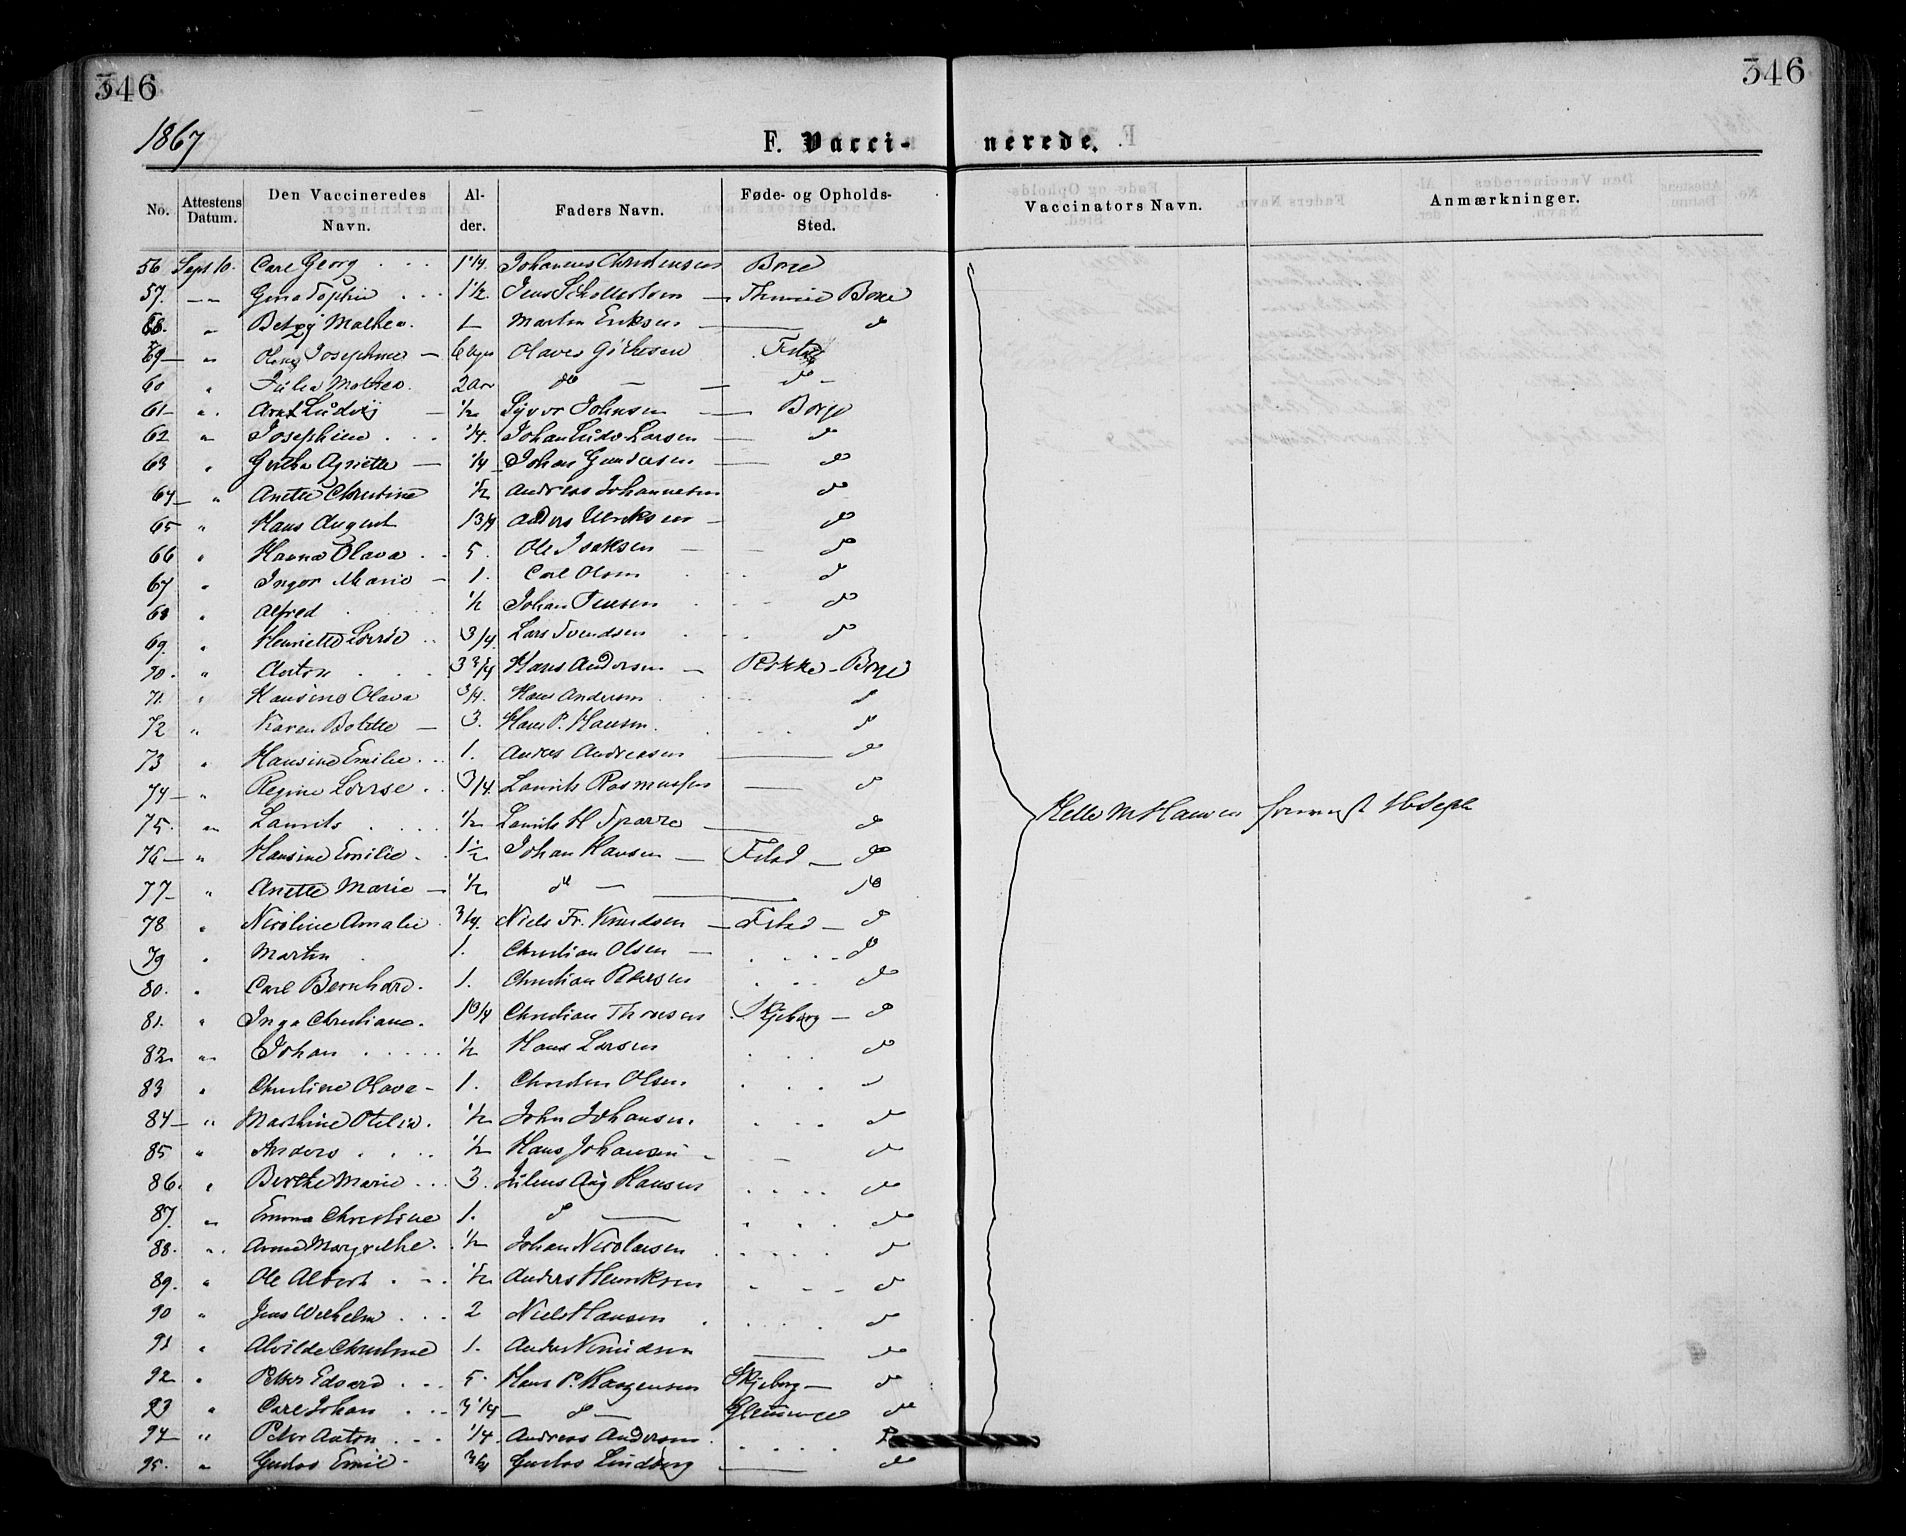 346
346
1867
F. Vaccinerede.
No. Attestens Datum. Den Vaccineredes Navn. Alder. Faders Navn. Føde- og Opholds-Sted. Vaccinators Navn. Anmærkninger.
56 Sept 16. Carl Georg 1 1/4. Johannes Christensen Borge
57. Sophie 1 1/2. Jens Thune Borge
58. " Betzy Mathea. 1 Martin Eriksen d
59 " Olava Josephine 6 Olaves Fstad
60 " Julia Mathea. 2 Aar do do
61 " Arnt Ludvig 1/2 Syver Johnsen Borge
62 " Josephine 1/4. Johan Ludv Larsen do
63 " Agnette 1/4 Johan Gundersen do
64 " Anette Christine 1/2 Andreas Johannesen do
65 " Hans August 1 3/4 Anders Ulriksen do
66 " Hanna Olava 5. Ole Isaksen do
67 " Inger Marie 1. Carl Olsen do
68 " Alfred 1/2 Johan Jensen do
69. " Henriette Lovise 3/4. Lars Svendsen do
70. " Anton 3 3/4 Hans Andersen Rokke Borge
71. " Hansine Olava 3/4. Hans Andersen d
72 " Karen Bolette 3. Hans P. Hansen. do
73 " Hansine Emilie 1. Anders Andreasen do
74 " Regine Lovise 3/4. Laurits Rasmussen do
75. " Laurits 1/2 Laurits H Sparre do Helle M Hansen 16 Sept
76 " Hansine Emilie 1 1/2 Johan Hansen Fstad do
77 " Anette Marie 1/2 do do
78 " Nicoline Amalie 3/4. Niels Fr. Knudsen Fstad d
79 " Martin 1. Christian Olsen do
80. " Carl Bernhard. 1. Christian Petersen do
81. " Inga Christiane. 1 3/4 Christian Skjeberg do
82 " Johan 1/2 Hans Larsen do
83 " Christine Olava 1. Christen Olsen
84 " Mathine Otelia. 1/2 John Johansen. do
85 " Anders 1/2 Hans Johansen do
86. " Berthe Marie 3. Julius Aug Hansen do
87. " Emma Christine 1. d do
88. " Anne Margrethe. 1/2 Johan Nicolaisen d
89. " Ole Albert 1/2 Anders Henriksen d
90 " Jens Wilhelm 2 Niels Hansen d
91 " Alvilde Christine 1. Anders Knudsen do
92 " Petter Edvard 5. Hans P. Haagensen Skjeberg do
93 " Carl Johan 3 1/4 d Glemminge do
94 " Peter Anton 1/4. Andreas Andersen.
95. " Gustav Emil 3/4 Gustav Lindberg do